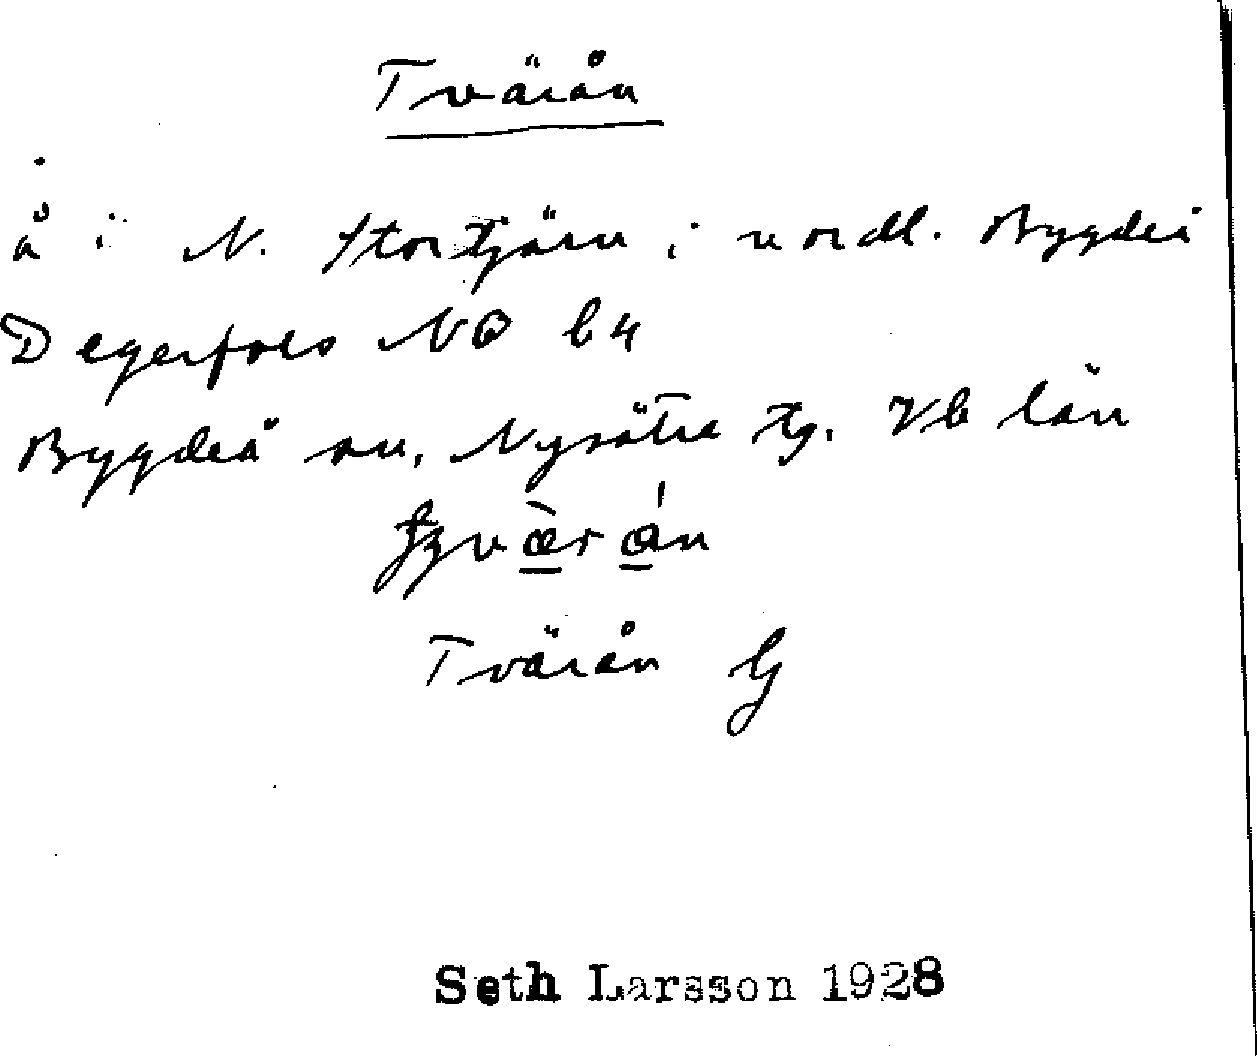 Tvärån
å i N. Stortjärn i nordl. Bygdeå
Degerfors NO b4
Bygdeå sn, Nysätra tg. Vb län
Tvärån G
Seth Larsson 1928